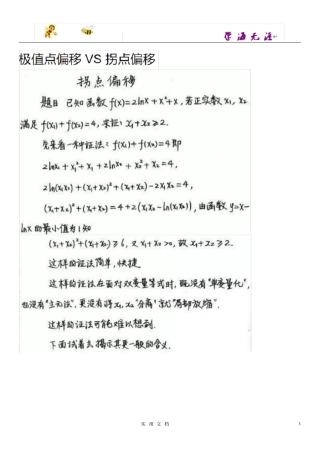 学海无涯
极值点偏移 VS 拐点偏移
拐点偏移
题目 已知函数f(x)=2lnx+x²+x,若正实数x₁,x₂
满足f(x₁)+f(x₂)=4,求证:x₁+x₂≥2.
先来看一种证法:f(x₁)+f(x₂)=4即
2lnx₁+x₁²+x₁+2lnx₂+x₂²+x₂=4,
2ln(x₁x₂)+(x₁+x₂)²+(x₁+x₂)-2x₁x₂=4,
(x₁+x₂)²+(x₁+x₂)=4+2(x₁x₂-ln(x₁x₂)),由函数y=x-
lnx的最小值为1知
(x₁+x₂)²+(x₁+x₂)≥6,又x₁+x₂>0,故x₁+x₂≥2.
这样的证法简单,快捷
这样的证法在面对双变量等式时,既没有"单变量化",
也没有"主元法",更没有将x₁,x₂"分离"就"局部放缩".
这样的证法可能难以想到.
下面试着去揭示其更一般的含义.
实用文档
1